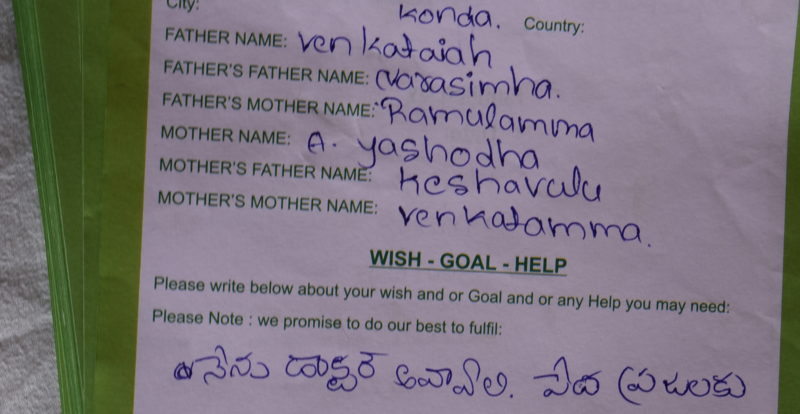 City: Konda. Country:
FATHER NAME: Venkataiah
FATHER'S FATHER NAME: Narasimha.
FATHER'S MOTHER NAME: Ramulamma
MOTHER NAME: A. yashodha
MOTHER'S FATHER NAME: Keshavulu
MOTHER'S MOTHER NAME: venkatamma.
WISH - GOAL - HELP
Please write below about your wish and or Goal and or any Help you may need:
Please Note : we promise to do our best to fulfil:
నేను డాక్టర్ అవావలి. పేద ప్రజలకు